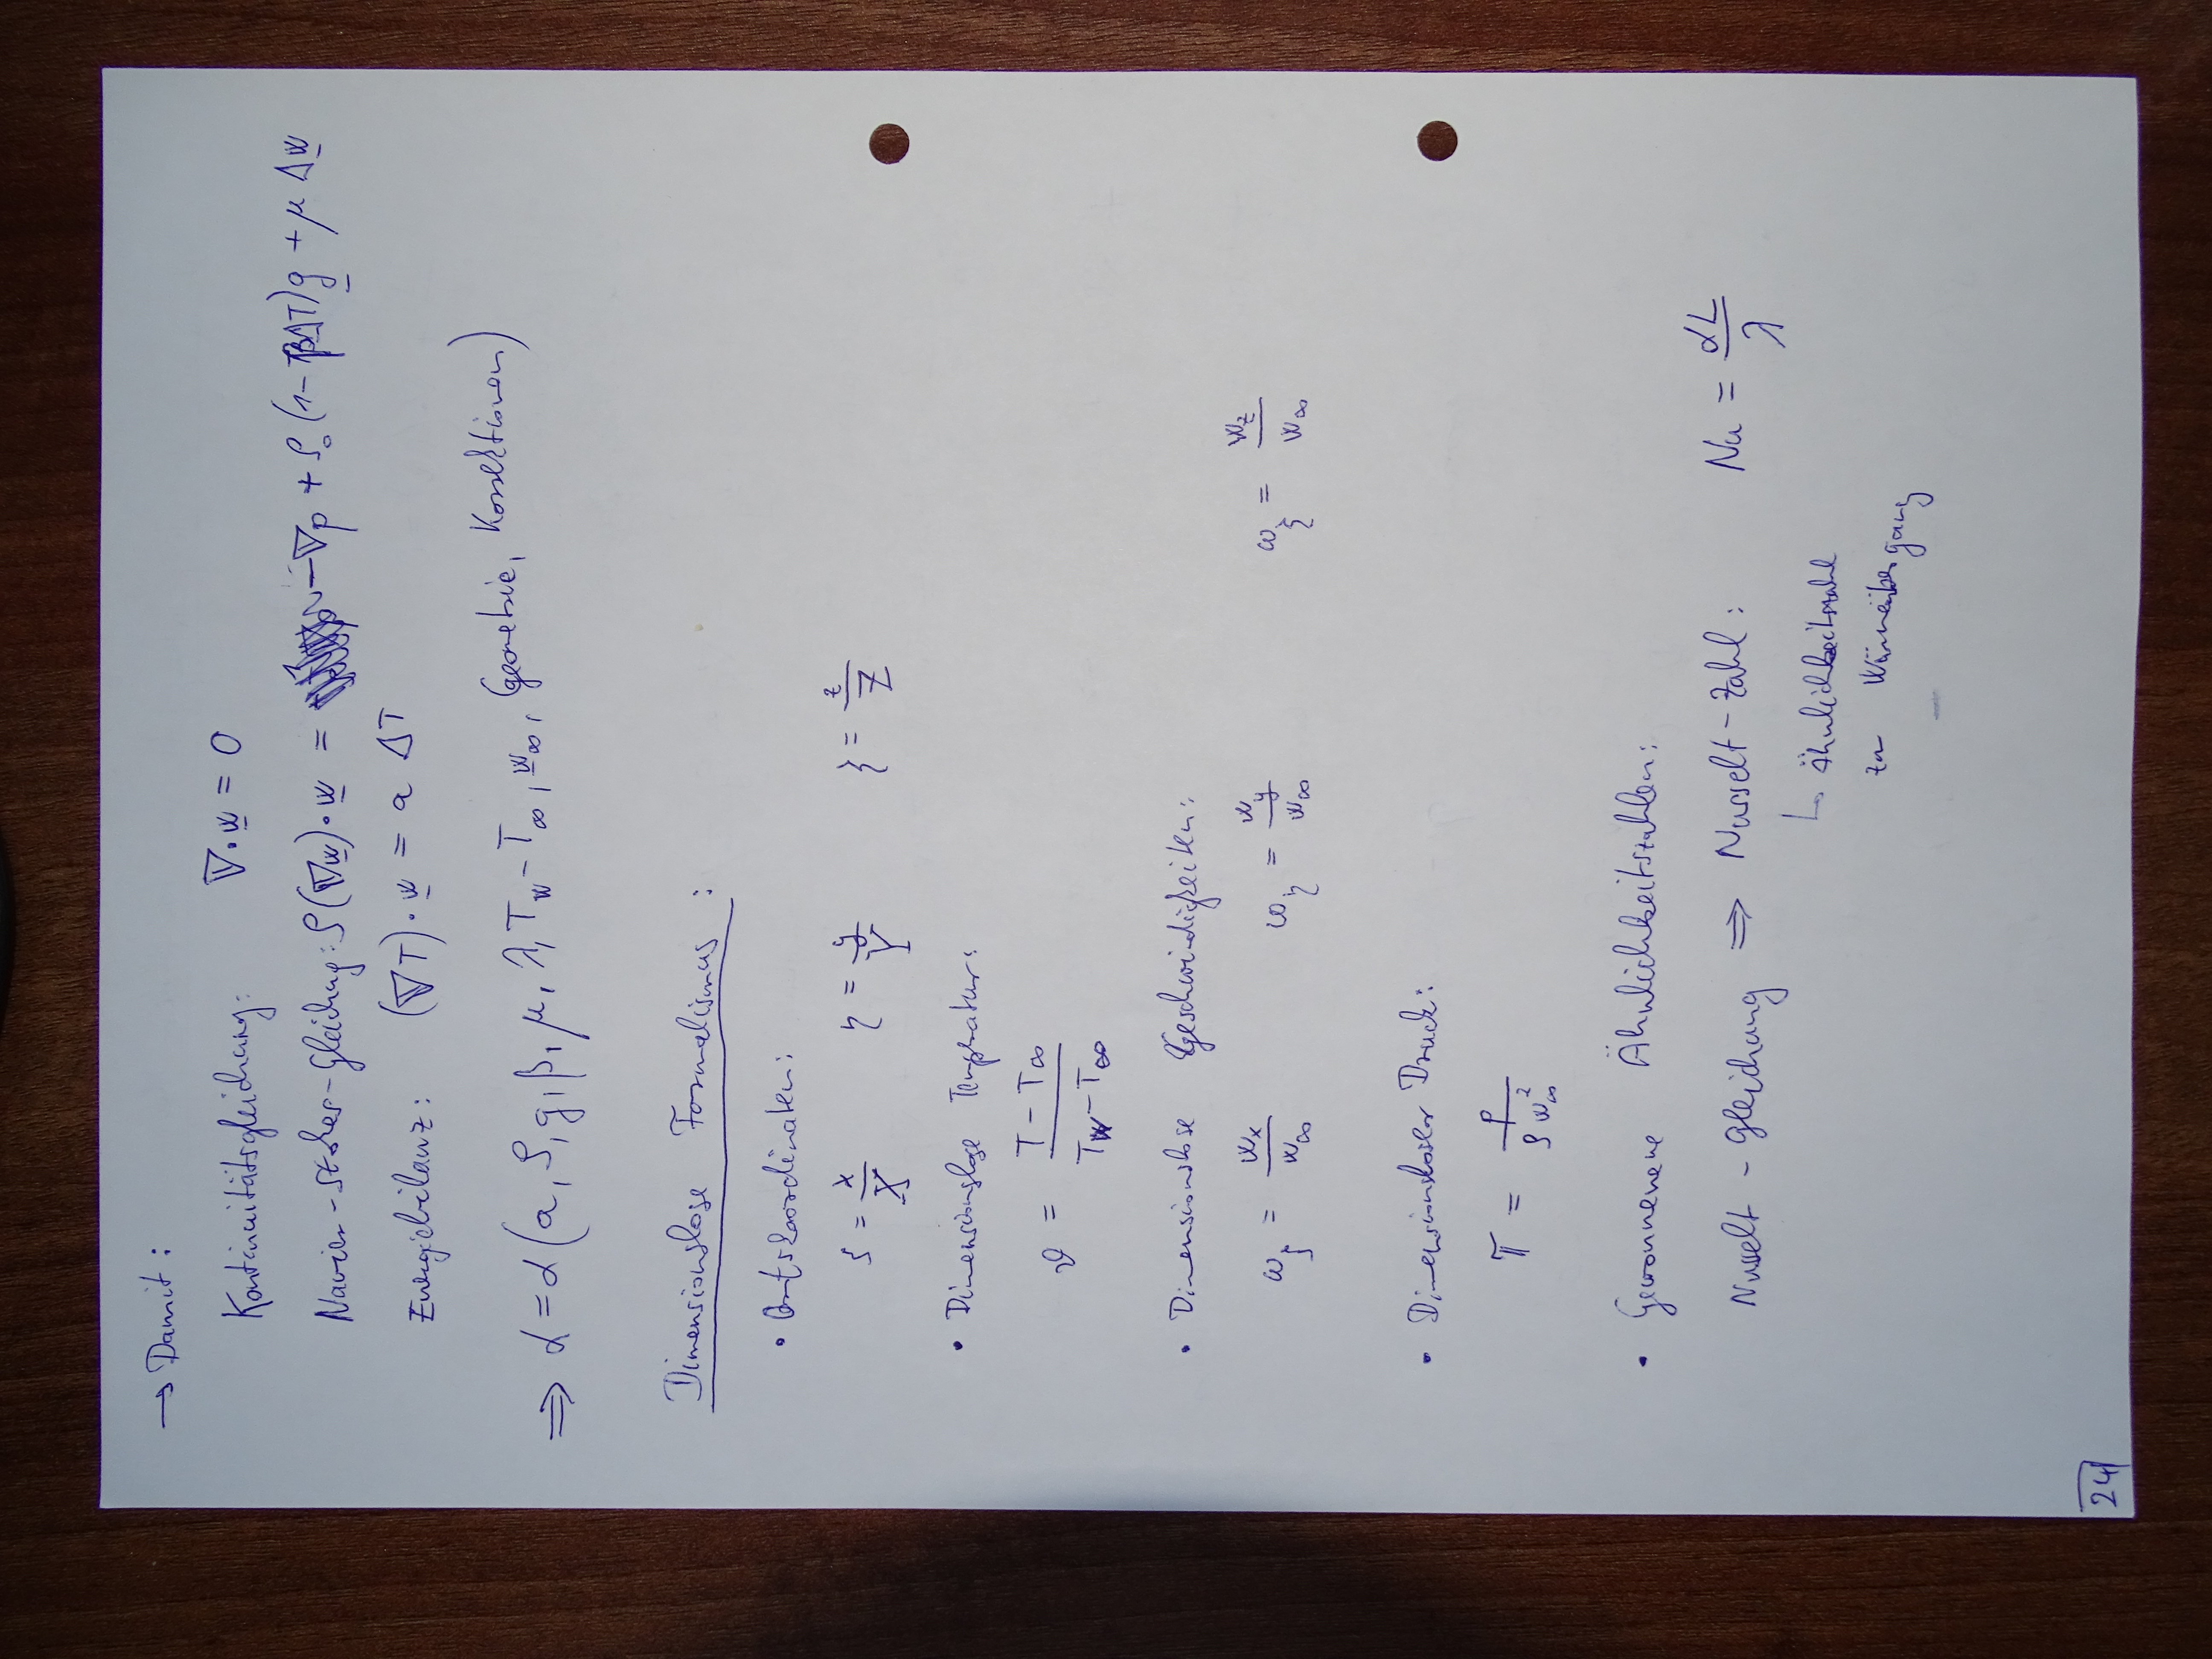 → Damit:
Kontinuitätsgleichung: ∇·w = 0
Navier-Stokes-Gleichung: ρ(∇w)·w = -∇p + ρ₀(1-βΔT)g + μ Δw
Energiebilanz: (∇T)·w = a ΔT
⇒ α = α(a, ρ, g, β, μ, λ, T_w - T_∞, w_∞, Geometrie, Korrekturen)
Dimensionslose Formalismus:
• Ortskoordinaten:
ζ = x/X η = y/Y ξ = z/Z
• Dimensionslose Temperatur:
ϑ = (T - T_∞)/(T_W - T_∞)
• Dimensionslose Geschwindigkeiten:
ω_ζ = w_x/w_∞ ω_η = w_y/w_∞ ω_ξ = w_z/w_∞
• Dimensionsloser Druck:
π = p/(ρ w_∞²)
• Gewonnene Ähnlichkeitszahlen:
Nusselt-Gleichung ⇒ Nusselt-Zahl: Nu = αL/λ
↳ Ähnlichkeitszahl
zu Wärmeübergang
24